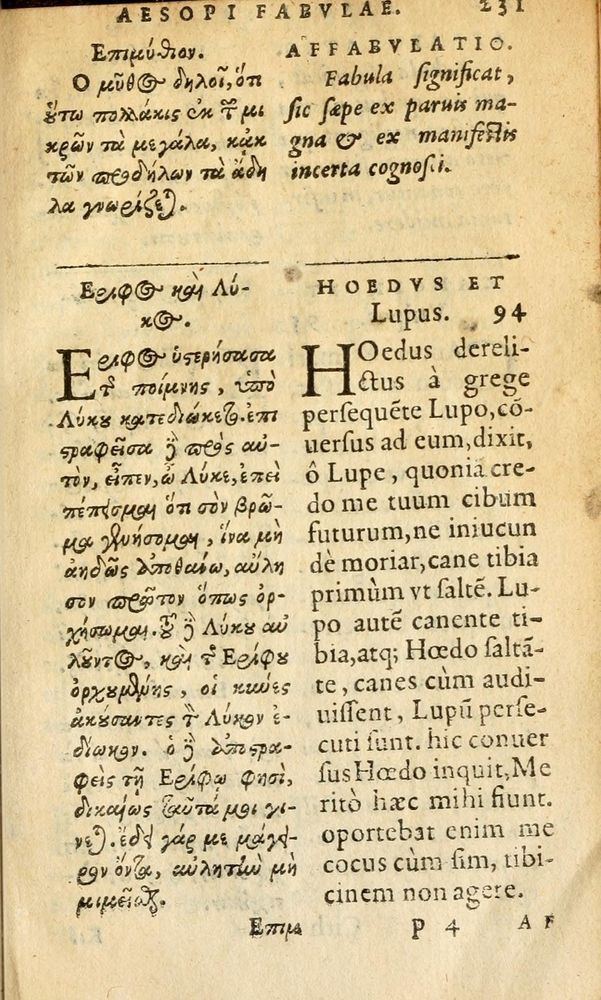 AESOPI FABVLAE. 231
Επιμύθιον.
Ο μῦθος δηλοῖ, ὅτι
οὕτω πολλάκις ἐκ τῶν μι
κρῶν τὰ μεγάλα, κἀκ
τῶν προδήλων τὰ ἄδη
λα γνωρίζεται.
AFFABVLATIO.
Fabula significat,
sic sæpe ex paruis ma-
gna & ex manifestis
incerta cognosci.
Εριφος καὶ Λύ-
κος.
Εριφος ὑστερήσασα
τῆς ποίμνης, ὑπὸ
Λύκου κατεδιώκετο. ἐπι
στραφεῖσα δὲ πρὸς αυ-
τὸν, εἶπεν, ὦ Λύκε, ἐπεὶ
πέπεισμαι ὅτι σὸν βρῶ-
μα γενήσομαι, ἵνα μὴ
ἀηδῶς ἀποθανῶ, αὔλη
σον πρῶτον ὅπως ὀρ-
χήσωμαι. τοῦ δὲ Λύκου αὐ
λοῦντος, καὶ τῆς Ερίφου
ὀρχουμένης, οἱ κύνες
ἀκούσαντες τὸν Λύκον ἐ-
δίωκον. ὁ δὲ ἐπιστρα-
φεὶς τῇ Ερίφῳ φησὶ,
δικαίως ταῦτά μοι γί-
νεται. ἔδει γάρ με μάγει-
ρον ὄντα, αὐλητὴν μὴ
μιμεῖσθαι.
Επιμυ
HOEDVS ET
Lupus. 94
HOedus dereli-
ctus à grege
persequẽte Lupo, cõ-
uersus ad eum, dixit,
ô Lupe, quonia cre-
do me tuum cibum
futurum, ne iniucun
dè moriar, cane tibia
primùm vt saltẽ. Lu-
po autẽ canente ti-
bia, atq; Hœdo saltã-
te, canes cùm audi-
uissent, Lupũ perse-
cuti sunt. hic conuer
sus Hœdo inquit, Me
ritò hæc mihi fiunt.
oportebat enim me
cocus cùm sim, tibi-
cinem non agere.
P 4 AF